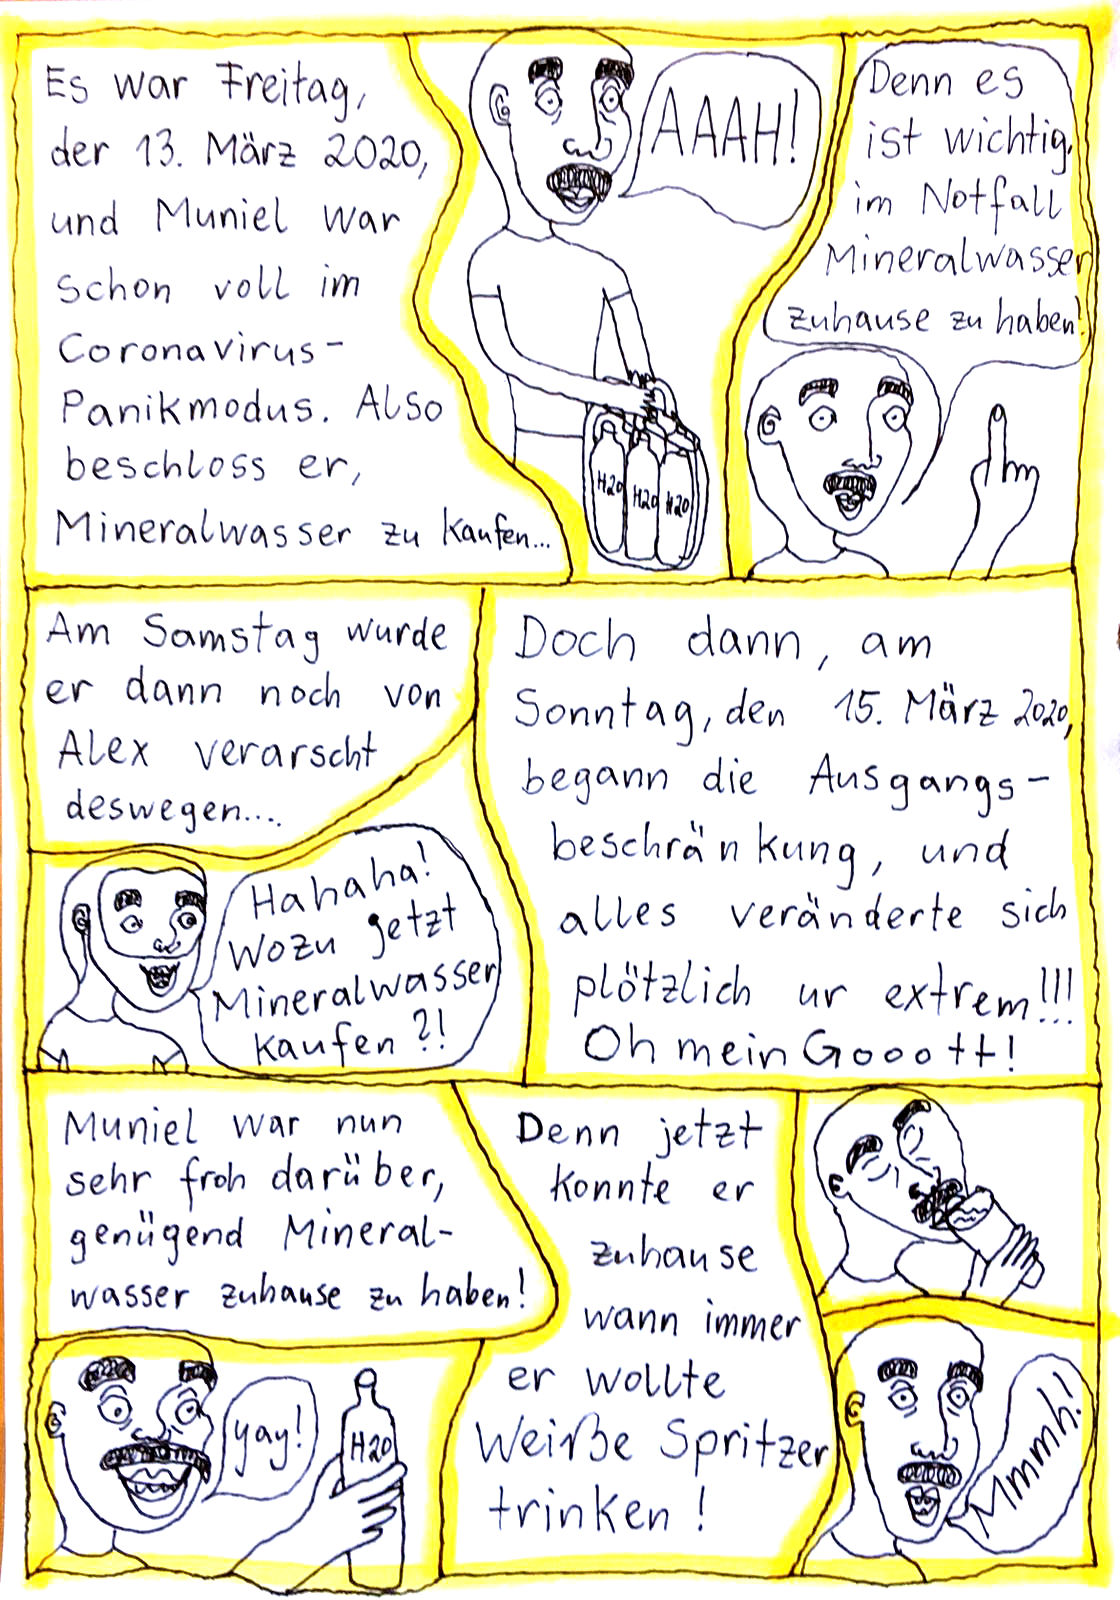 Es war Freitag,
der 13. März 2020,
und Muniel war
schon voll im
Coronavirus-
Panikmodus. Also
beschloss er,
Mineralwasser zu kaufen...
AAAH!
H2O
H2O
H2O
Denn es
ist wichtig,
im Notfall
Mineralwasser
zuhause zu haben!
Am Samstag wurde
er dann noch von
Alex verarscht
deswegen....
Hahaha!
Wozu jetzt
Mineralwasser
kaufen?!
Doch dann, am
Sonntag, den 15. März 2020,
begann die Ausgangs-
beschränkung, und
alles veränderte sich
plötzlich ur extrem!!!
Oh mein Gooott!
Muniel war nun
sehr froh darüber,
genügend Mineral-
wasser zuhause zu haben!
yay!
H2O
Denn jetzt
konnte er
zuhause
wann immer
er wollte
Weiße Spritzer
trinken!
Mmmh!